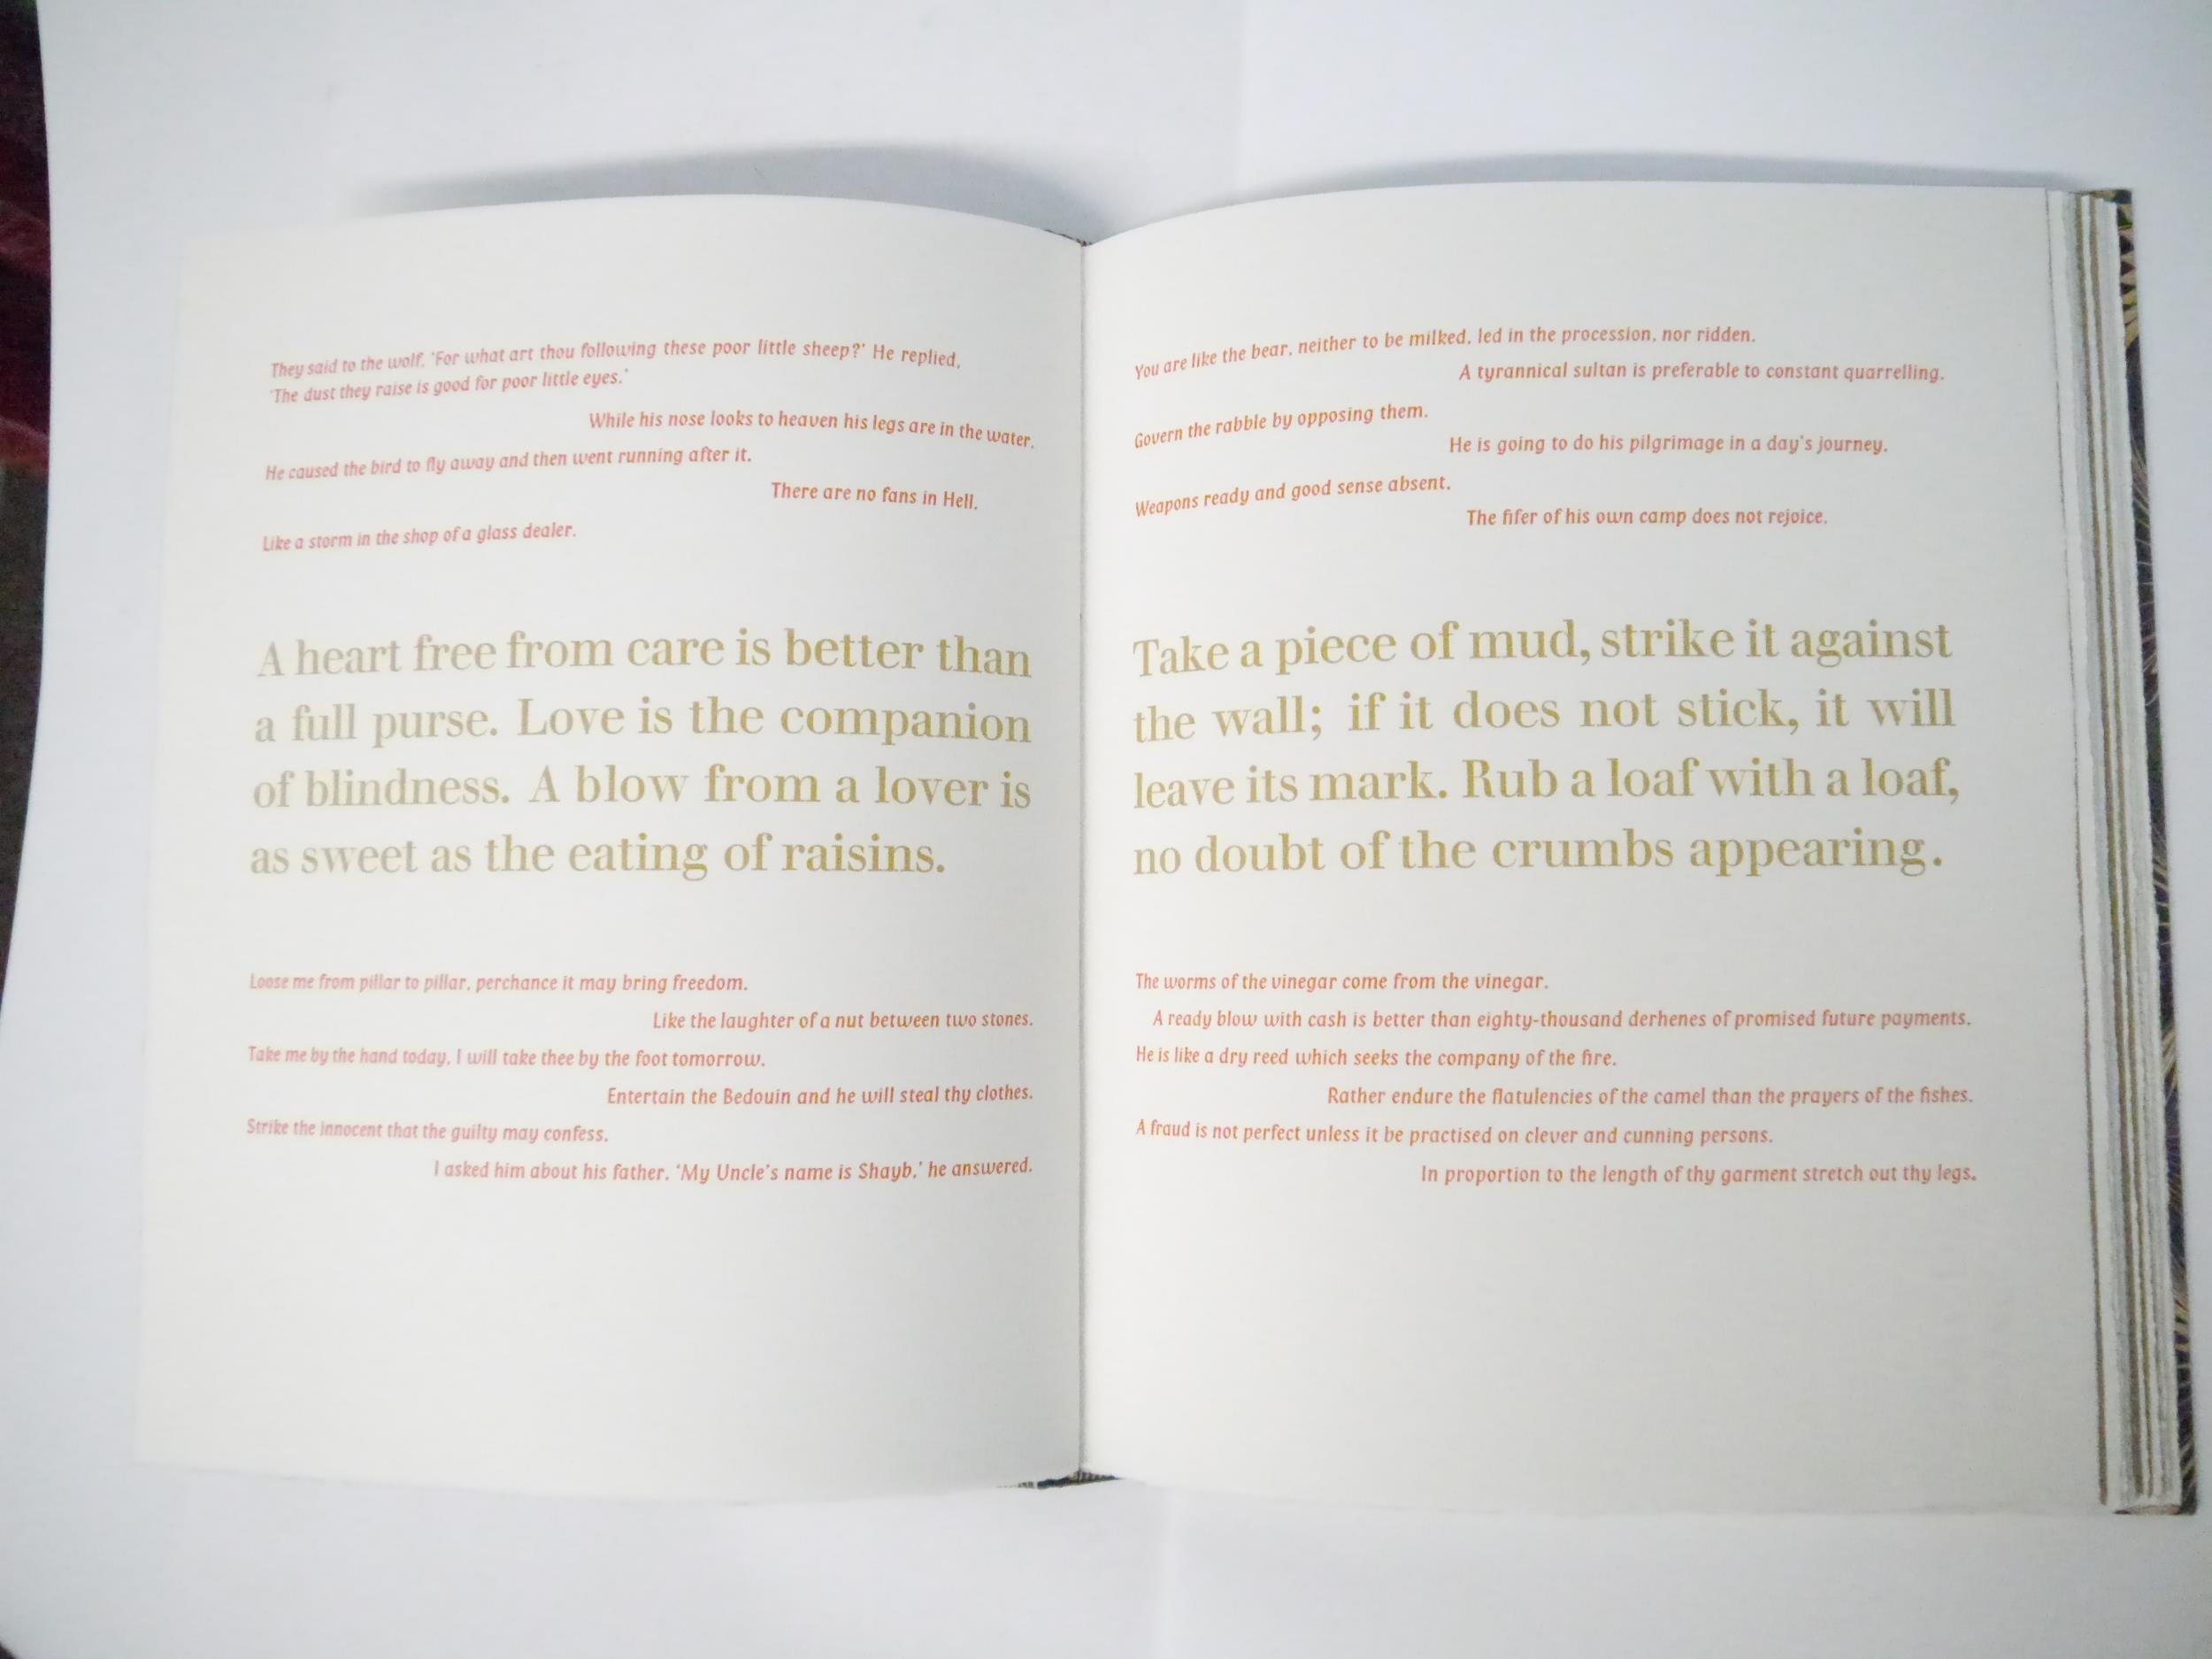 They said to the wolf, 'For what art thou following these poor little sheep?' He replied,
'The dust they raise is good for poor little eyes.'
While his nose looks to heaven his legs are in the water.
He caused the bird to fly away and then went running after it.
There are no fans in Hell.
Like a storm in the shop of a glass dealer.
A heart free from care is better than
a full purse. Love is the companion
of blindness. A blow from a lover is
as sweet as the eating of raisins.
Loose me from pillar to pillar, perchance it may bring freedom.
Like the laughter of a nut between two stones.
Take me by the hand today, I will take thee by the foot tomorrow.
Entertain the Bedouin and he will steal thy clothes.
Strike the innocent that the guilty may confess.
I asked him about his father. 'My Uncle's name is Shayb,' he answered.
You are like the bear, neither to be milked, led in the procession, nor ridden.
A tyrannical sultan is preferable to constant quarrelling.
Govern the rabble by opposing them.
He is going to do his pilgrimage in a day's journey.
Weapons ready and good sense absent.
The fifer of his own camp does not rejoice.
Take a piece of mud, strike it against
the wall; if it does not stick, it will
leave its mark. Rub a loaf with a loaf,
no doubt of the crumbs appearing.
The worms of the vinegar come from the vinegar.
A ready blow with cash is better than eighty-thousand derhenes of promised future payments.
He is like a dry reed which seeks the company of the fire.
Rather endure the flatulencies of the camel than the prayers of the fishes.
A fraud is not perfect unless it be practised on clever and cunning persons.
In proportion to the length of thy garment stretch out thy legs.